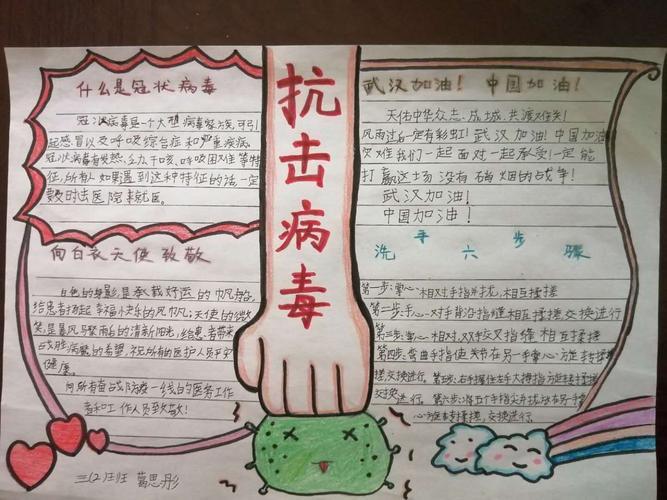 什么是冠状病毒
冠状病毒是一个大型病毒家族,可引
起感冒以及呼吸综合症和严重疾病
冠状病毒有发热、乏力干咳、呼吸困难等特
征,所有人如果遇到这种特征的话一定
要及时去医院来就医。
向白衣天使致敬
白色的身影,是承载好运的帆船,
给患者扬起幸福快乐的风帆;天使的微
笑,是暴风骤雨后的清新阳光,给患者带来
战胜病魔的希望,祝所有的医护人员平安
健康。
向所有奋战防疫一线的医务工作
者和工作人员致敬!
三(2)班 葛思彤
抗击病毒
武汉加油! 中国加油!
天佑中华众志成城,共渡难关!
风雨过后一定有彩虹!武汉加油!中国加油
灾难我们一起面对一起承受!一定能
打赢这场没有硝烟的战争!
武汉加油!
中国加油!
洗手六步骤
第一步:掌心相对手指并拢,相互揉搓
第二步:手心对手背沿指缝相互揉搓,交换进行
第三步:掌心相对,双手交叉指缝相互揉搓
第四步:弯曲手指使关节在另一手掌心旋转揉
搓,交换进行。第五步:右手握住左手大拇指旋转揉搓
交换进行。第六步:将五个手指尖并拢放在另一手
心旋转揉搓,交换进行。